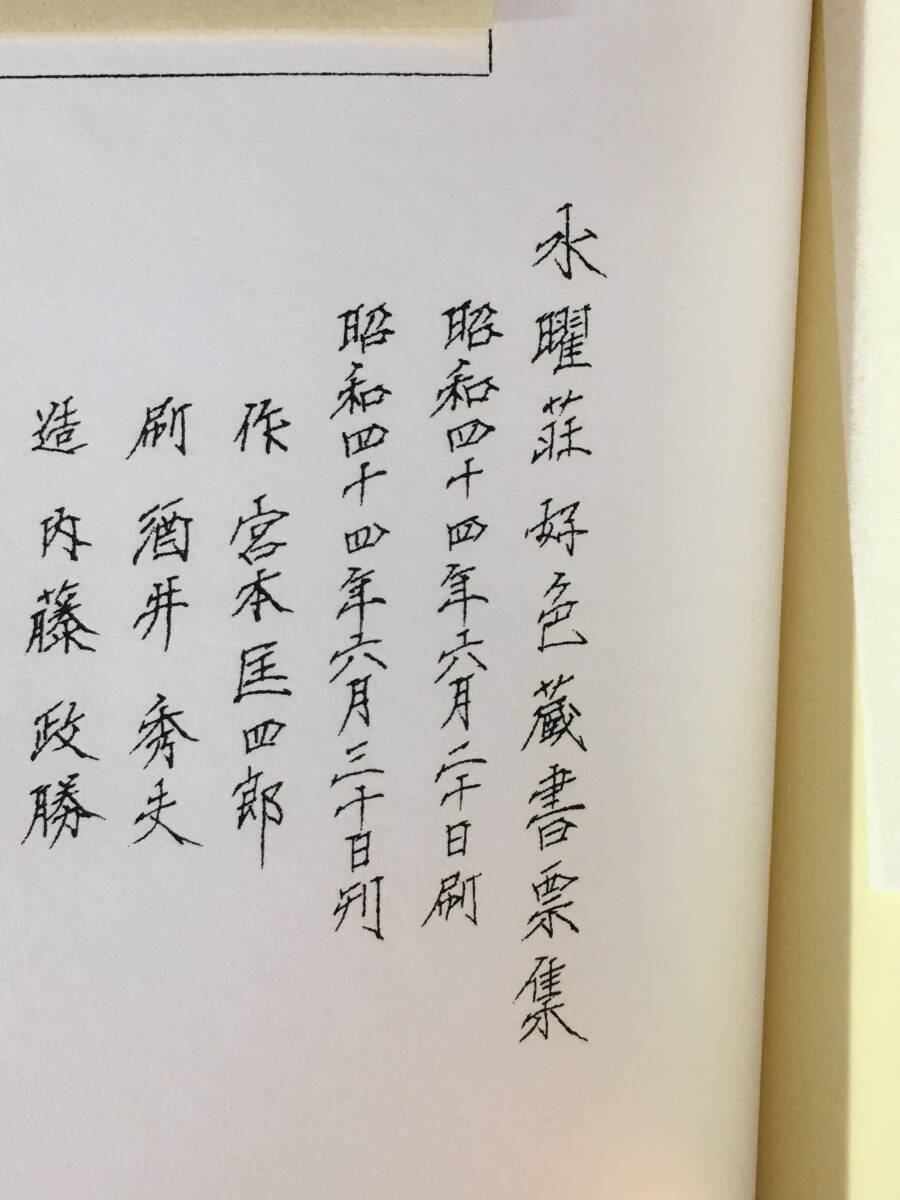 水曜荘好色蔵書票集
昭和四十四年六月二十日刷
昭和四十四年六月三十日刊
作 宮本匡四郎
刷 酒井 秀夫
造 内藤 政勝